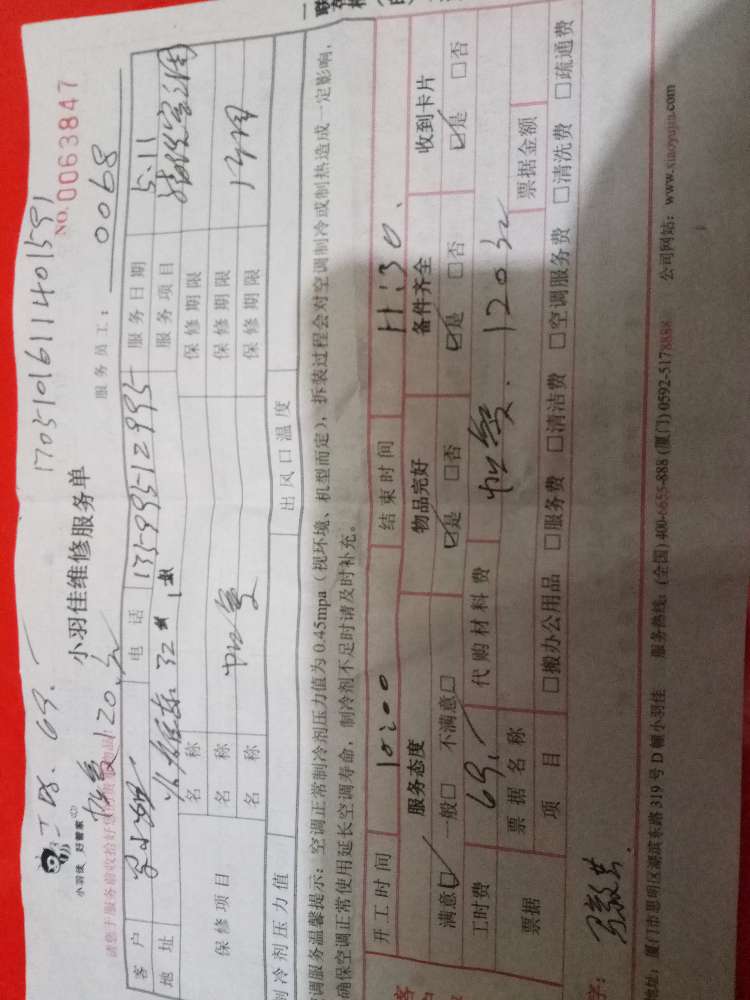 17051016111401591
NO. 0063847
小羽佳 好管家
69.-
120元
小羽佳维修服务单
服务员工: 0068
客户 电话 13599512995 服务日期 5.11
地址 服务项目
保修项目 名称 保修期限
名称 保修期限
名称 保修期限
制冷剂压力值 出风口温度
调服务温馨提示: 空调正常制冷剂压力值为0.45mpa(视环境、机型而定), 拆装过程会对空调制冷或制热造成一定影响,
确保空调正常使用延长空调寿命, 制冷剂不足时请及时补充。
开工时间 10:00 结束时间 11:30.
服务态度 物品完好 备件齐全 收到卡片
满意☑ 一般□ 不满意□ ☑是 □否 ☑是 □否 ☑是 □否
工时费 69.- 代购材料费 120元
票据 票据名称 票据金额
项目 □搬办公用品 □服务费 □清洁费 □空调服务费 □清洗费 □疏通费
地址: 厦门市思明区湖滨东路319号D幢小羽佳 服务热线: (全国)400-6655-888 (厦门)0592-5178888 公司网站: www.xiaoyujia.com